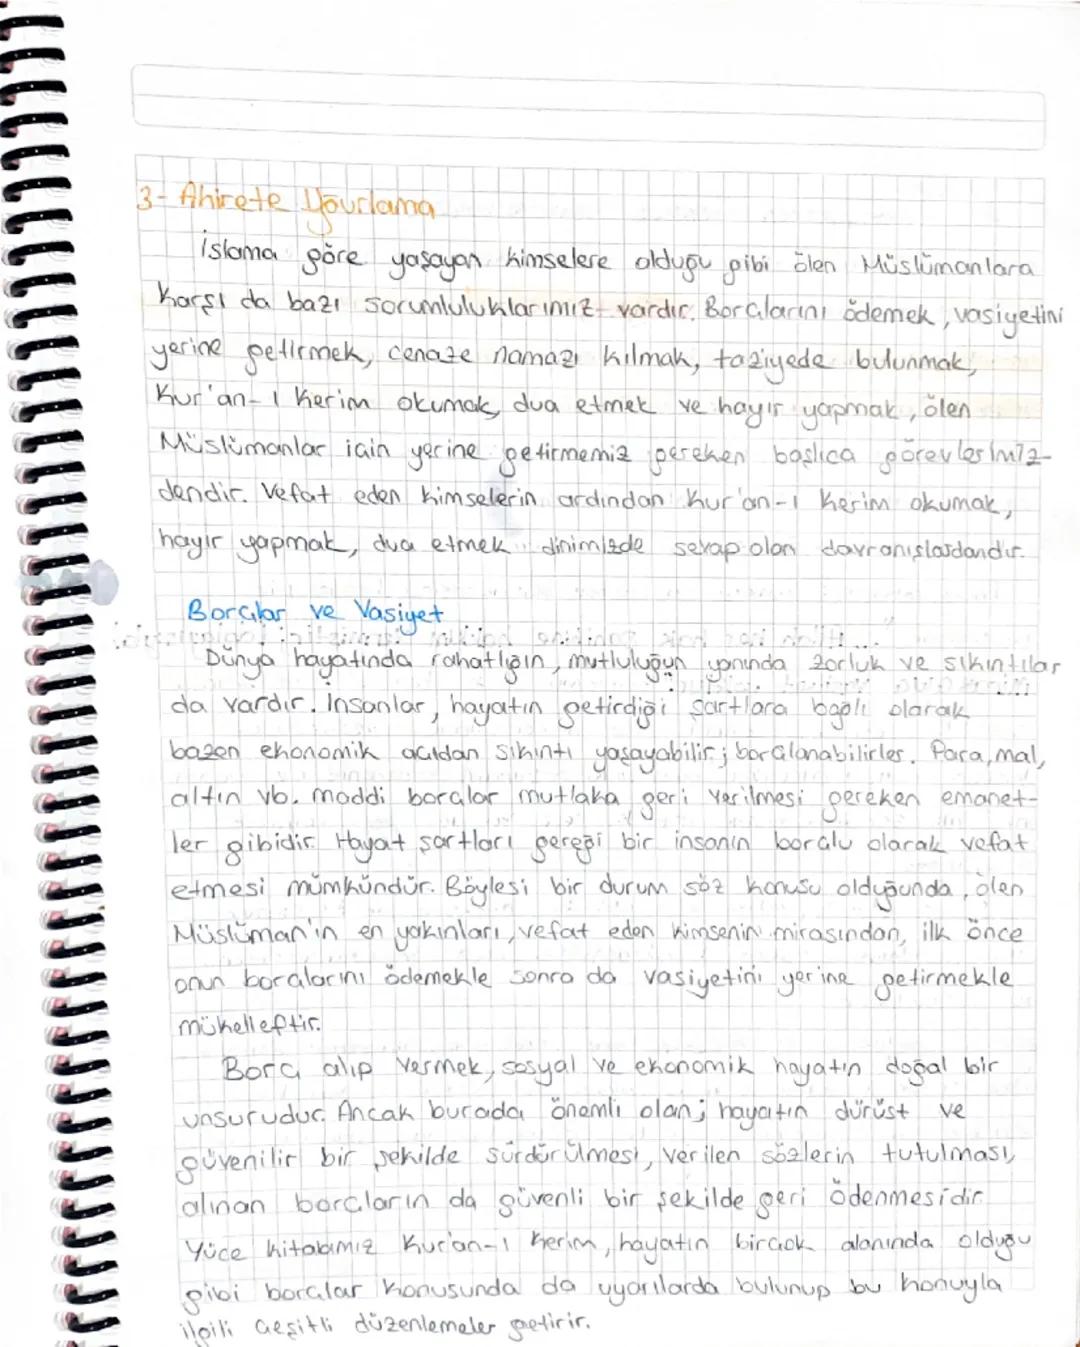 3- Ahirete Yourlama
İslama göre yaşayan kimselere olduğu gibi ölen Müslümanlara
karşı da bazı sorumluluklarımız vardır. Borçlarını ödemek, vasiyetini
yerine getirmek, cenaze namazı kılmak, taziyede bulunmak,
Kur'an-ı Kerim okumak, dua etmek ve hayır yapmak, ölen
Müslümanlar için yerine getirmemiz gereken başlıca görevlerimiz-
dendir. Vefat eden kimselerin ardından Kur'an-ı Kerim okumak,
hayır yapmak, dua etmek dinimizde sevap olan davranışlardandır.
Borçlar ve Vasiyet
Dünya hayatında rahatlığın, mutluluğun yanında zorluk ve sıkıntılar
da vardır. İnsanlar, hayatın getirdiği şartlara bağlı olarak
bazen ekonomik açıdan sıkıntı yaşayabilir; borçlanabilirler. Para, mal,
altın vb. maddi borçlar mutlaka geri verilmesi gereken emanet-
ler gibidir. Hayat şartları gereği bir insanın borçlu olarak vefat
etmesi mümkündür. Böylesi bir durum söz konusu olduğunda, ölen
Müslüman'ın en yakınları, vefat eden kimsenin mirasından, ilk önce
onun borçlarını ödemekle sonra da vasiyetini yerine getirmekle
mükelleftir.
Borç alıp vermek, sosyal ve ekonomik hayatın doğal bir
unsurudur. Ancak burada önemli olan; hayatın dürüst ve
güvenilir bir şekilde sürdürülmesi, verilen sözlerin tutulması,
alınan borçların da güvenli bir şekilde geri ödenmesidir.
Yüce kitabımız Kur'an-ı Kerim, hayatın birçok alanında olduğu
gibi borçlar konusunda da uyarılarda bulunup bu konuyla
ilgili çeşitli düzenlemeler getirir.